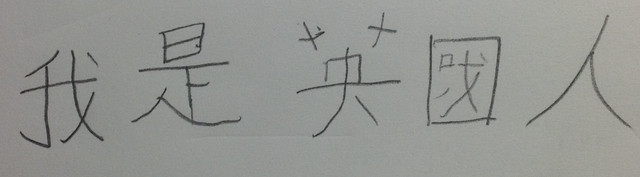 我是英國人